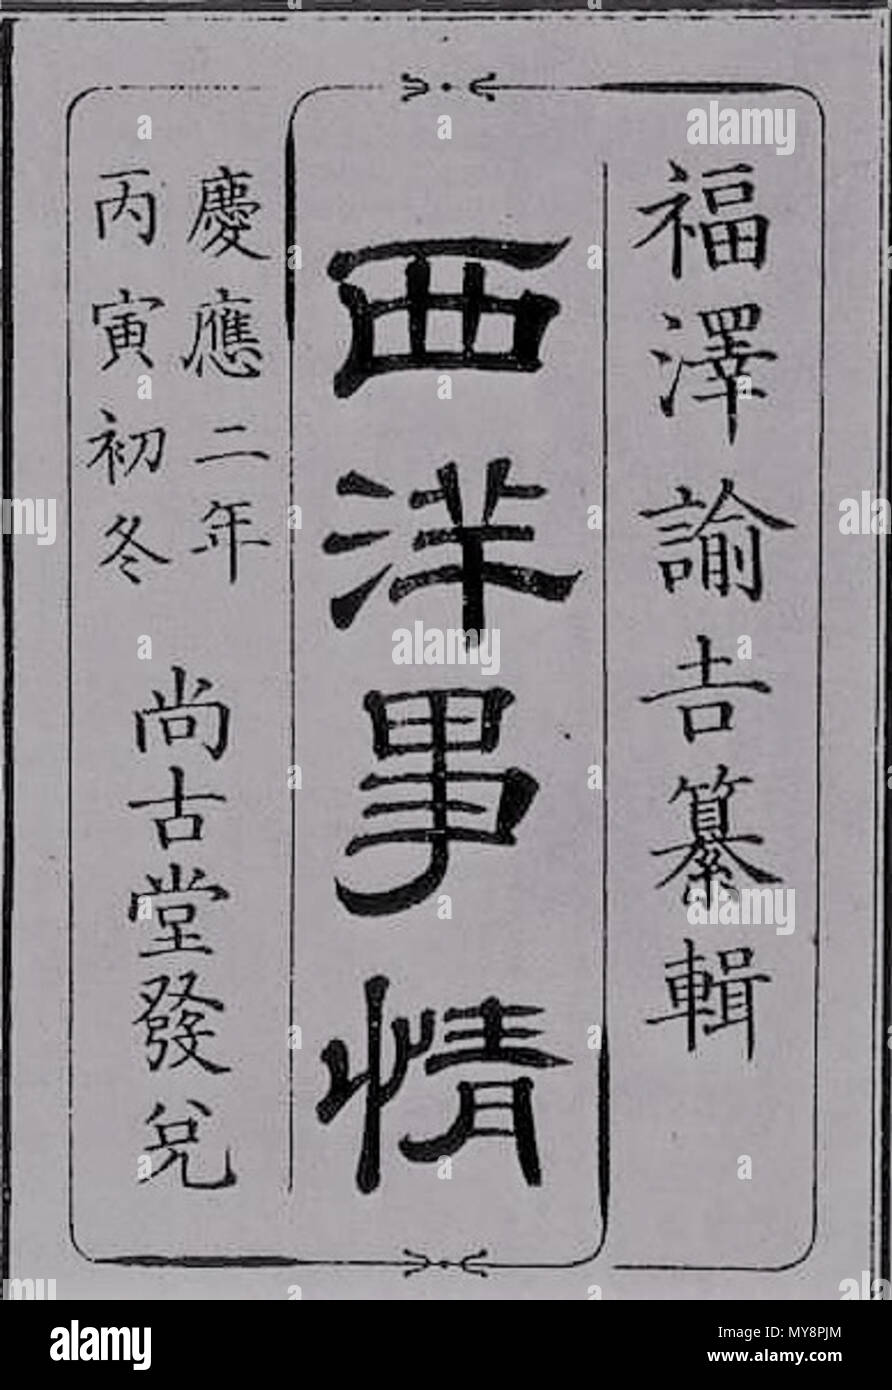 福澤諭吉纂輯
西洋事情
慶應二年
丙寅初冬
尚古堂發兌
alamy
a
alamy stock photo
MY8PJM
www.alamy.com